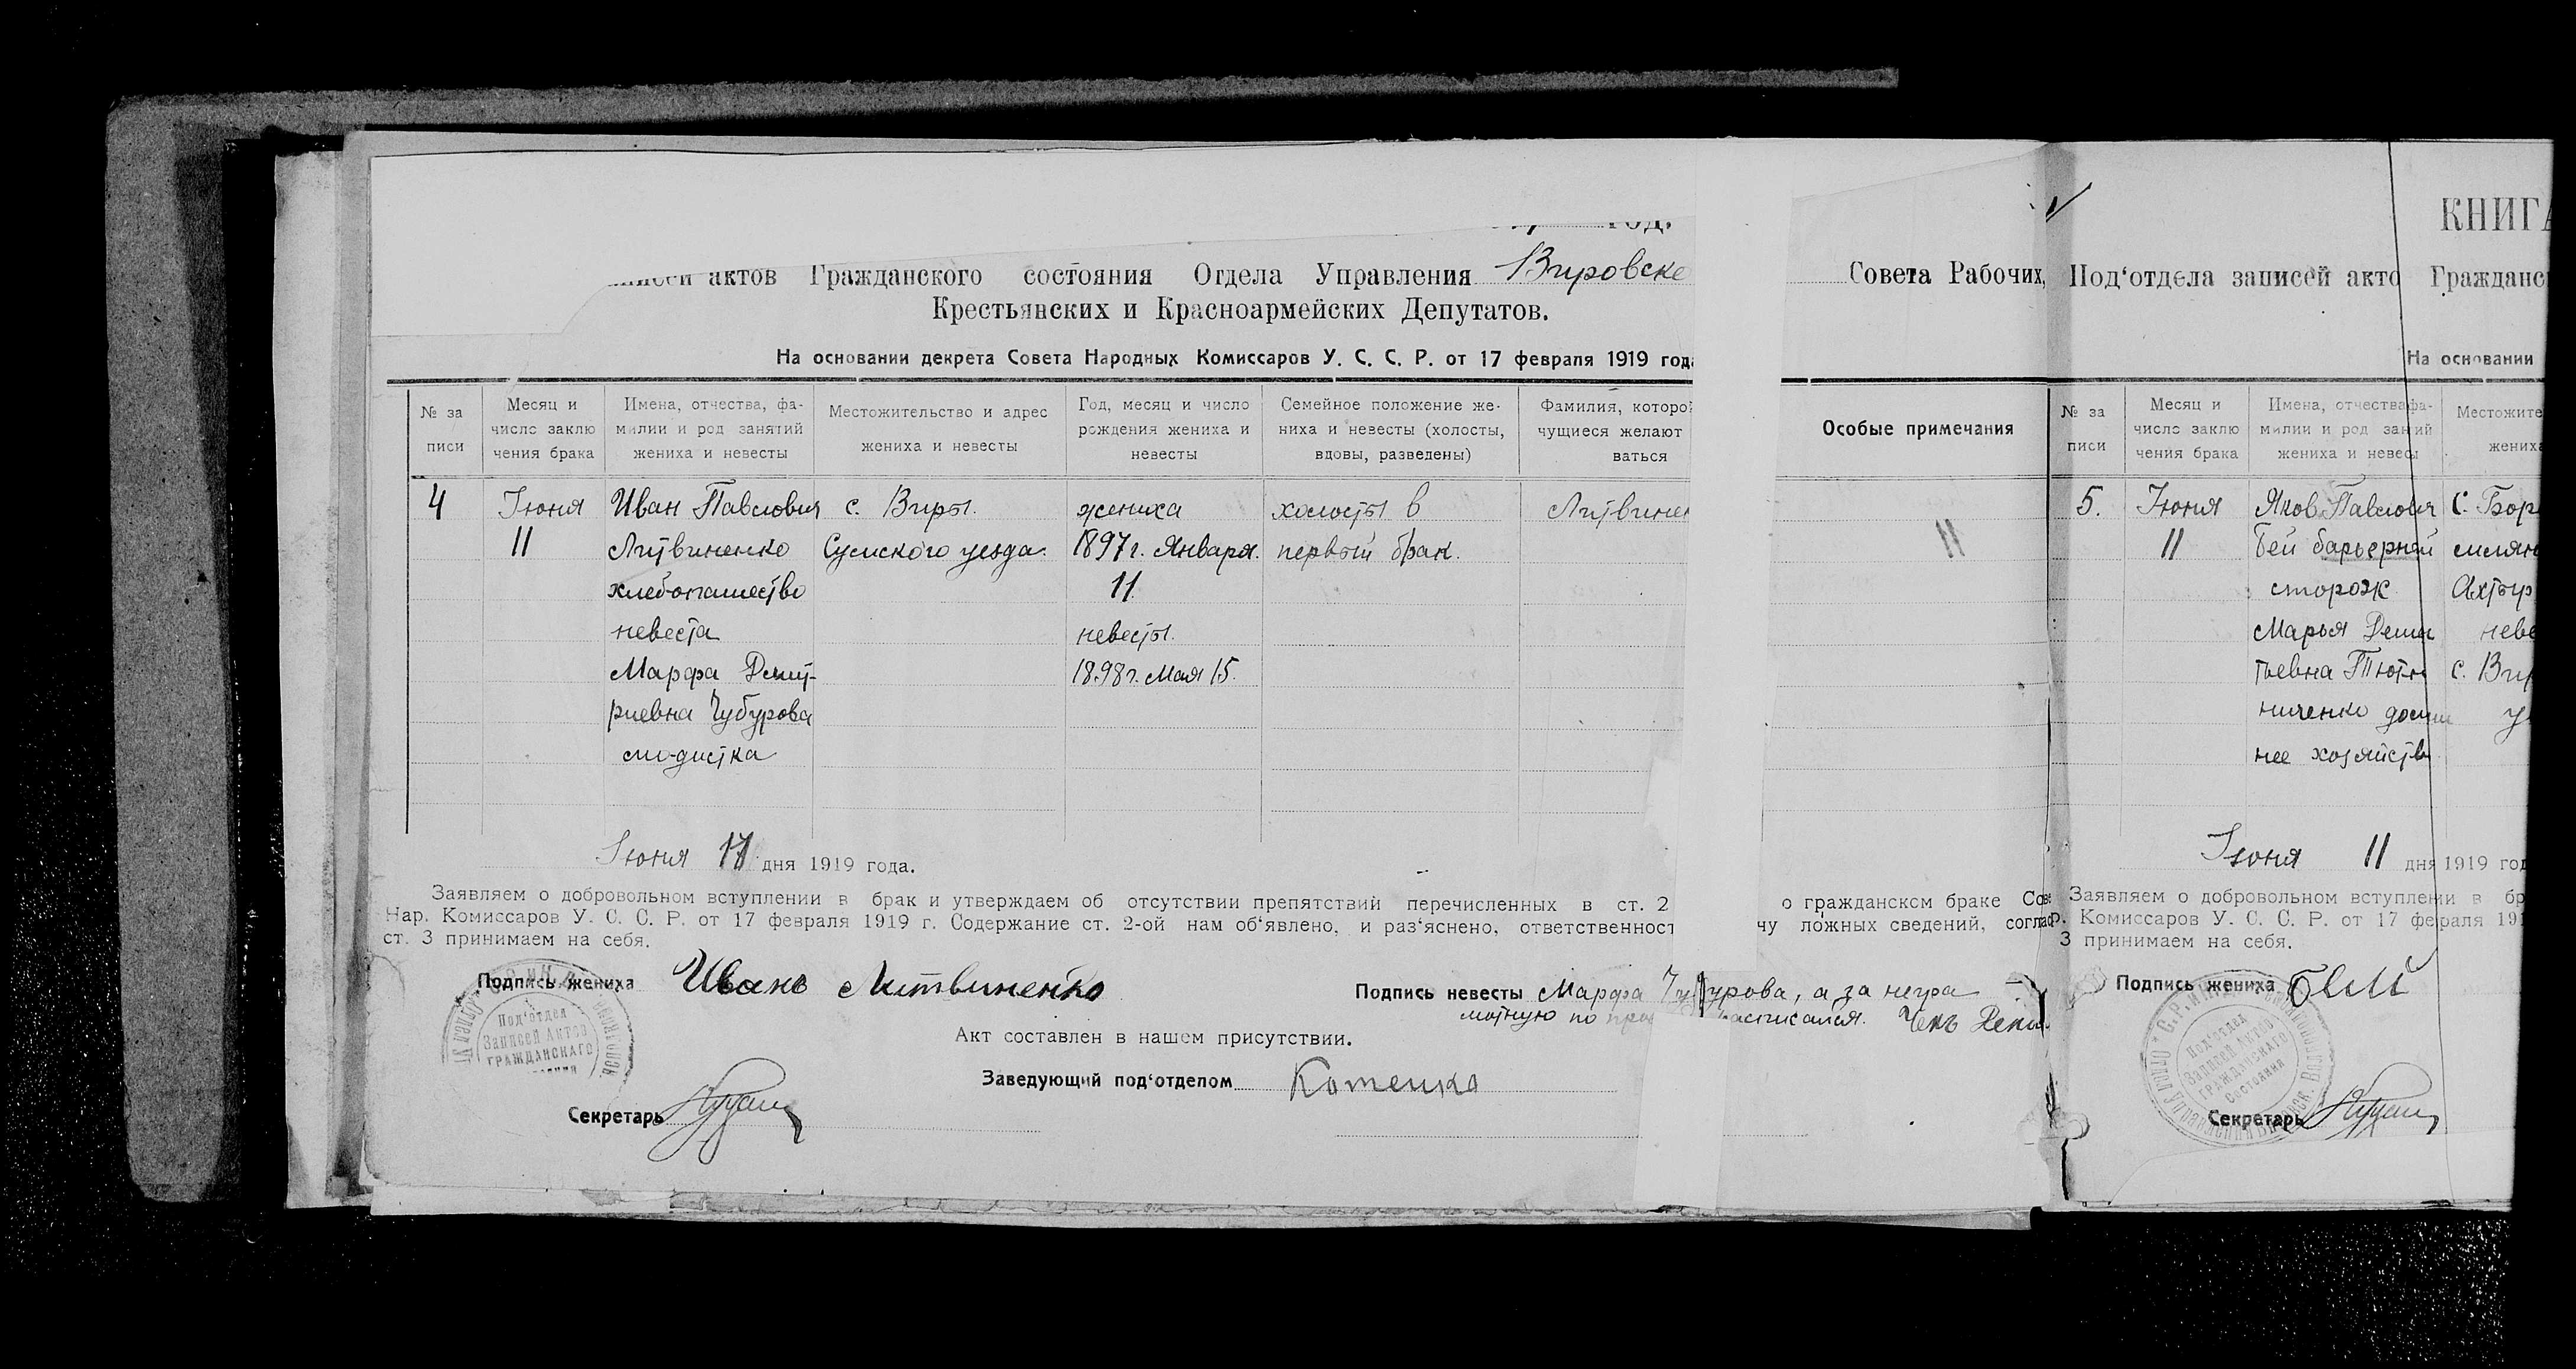 год.
записей актов Гражданского состояния Отдела Управления Вировске Совета Рабочих,
Крестьянских и Красноармейских Депутатов.
На основании декрета Совета Народных Комиссаров У. С. С. Р. от 17 февраля 1919 года
№ за писи
Месяц и число заклю чения брака
Имена, отчества, фа- милии и род занятий жениха и невесты
Местожительство и адрес жениха и невесты
Год, месяц и число рождения жениха и невесты
Семейное положение же- ниха и невесты (холосты, вдовы, разведены)
Фамилия, которой чущиеся желают ваться
Особые примечания
4 Июня Иван Павлович с. Виры. жениха холосты в Литвинен
11 Литвиненко Сумского уезда. 1897 г. Января. первый брак. 11
хлебопашество 11
невеста невесты.
Марфа Дмит- 1898 г. Мая 15.
риевна Чубурова
модистка
Июня 11 дня 1919 года.
Заявляем о добровольном вступлении в брак и утверждаем об отсутствии препятствий перечисленных в ст. 2 о гражданском браке Сов.
Нар. Комиссаров У. С. С. Р. от 17 февраля 1919 г. Содержание ст. 2-ой нам об‘явлено, и раз‘яснено, ответственност чу ложных сведений, соглас
ст. 3 принимаем на себя.
Подпись жениха Иванъ Литвиненко
Подпись невесты Марфа Чубурова, а за негра
мотную по расписался.
Акт составлен в нашем присутствии.
Заведующий под‘отделом Котенко
Секретарь
Под‘отдел
Записей Актов
ГРАЖДАНСКАГО
КНИГА
Под‘отдела записей акто Гражданс
На основании
№ за писи
Месяц и число заклю чения брака
Имена, отчества фа- милии и род заний жениха и невесы
Местожите жениха
5. Июня Яков Павлович С. Бор
11 Бей барьерный
сторож Ахтыр
Марья Демен неве
тьевна Тютю с. Вир
ниченко домаш у
нее хозяйств
Июня 11 дня 1919 год
Заявляем о добровольном вступлении в бр
р. Комиссаров У. С. С. Р. от 17 февраля 191
3 принимаем на себя.
Подпись жениха Бей
Под‘отдел
Записей Актов
ГРАЖДАНСКАГО
Состояния
Секретарь